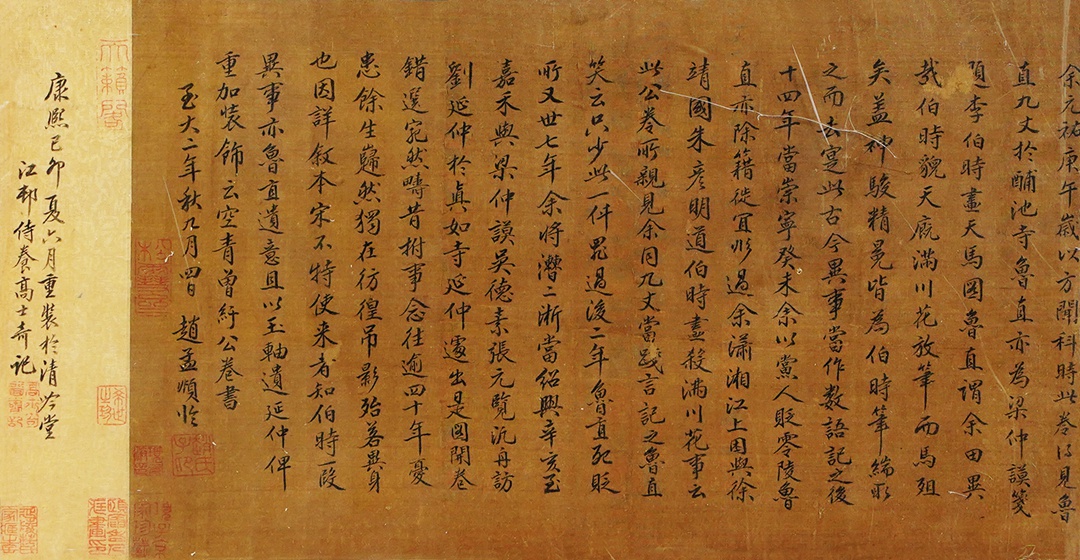 余元祐庚午歲以方聞科時此卷得見魯
直九丈於酺池寺魯直亦為梁仲謨箋
題李伯時畫天馬圖魯直謂余曰異
哉伯時貌天廄滿川花放筆而馬殂
矣蓋神駿精晃皆為伯時筆端取
之而去寔此古今異事當作數語記之後
十四年當崇寧癸未余以黨人貶零陵魯
直亦除籍徙宜州過余瀟湘江上因與徐
靖國朱彥明道伯時畫殺滿川花事云
此公卷所親見余曰九丈當踐言記之魯直
笑云只少此一件罪過後二年魯直死貶
所又卅七年余將漕二浙當紹興辛亥至
嘉禾與梁仲謨吳德素張元覽汎舟訪
劉延仲於真如寺延仲遽出是圖開卷
錯愕宛然疇昔拊事念往逾四十年憂
患餘生巋然獨在彷徨吊影殆若異身
也因詳敘本末不特使来者知伯時一段
異事亦魯直遺意且以玉軸遺延仲俾
重加裝飾云空青曾紆公卷書
至大二年秋九月四日 趙孟頫臨
天籟閣
康熙己卯夏六月重裝於清吟堂
江邨侍養高士奇記